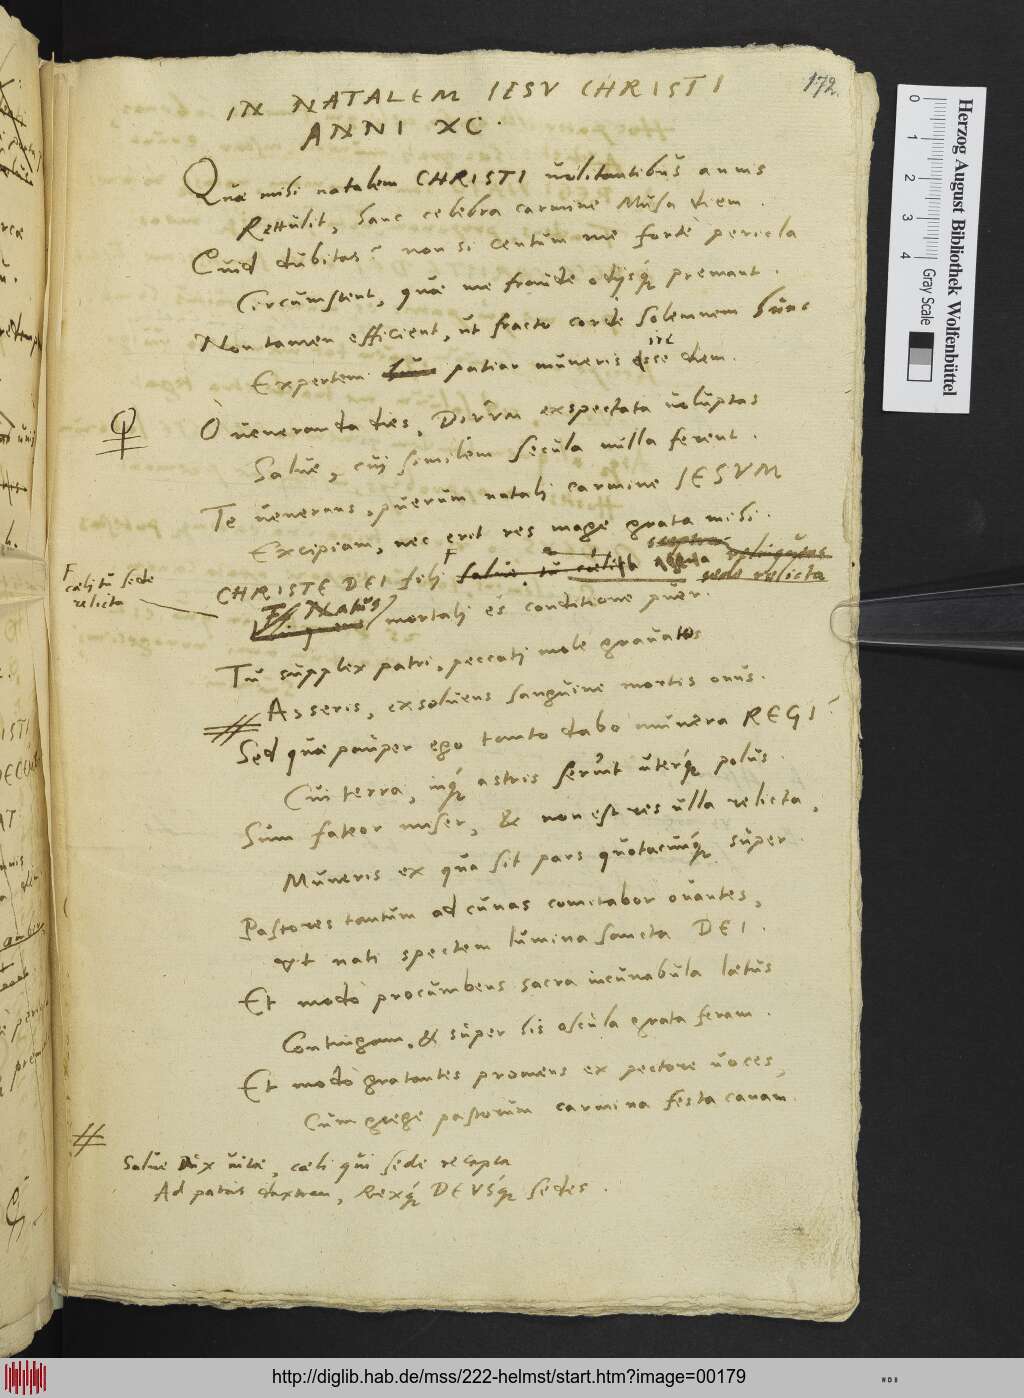 172.
IN NATALEM IESV CHRISTI
ANNI XC.
Quæ mihi natalem CHRISTI uolitantibus annis
Rettulit, hanc celebra carmine Musa diem.
Cuid dubitas? non si centum me fortè pericla
Circumstent, quæ me fraude odijsq́ premant.
Non tamen efficient, ut fracto corde solemnem
Expertem patiar muneris esse diem.
O ueneranda dies, exspectata uoluptas
Salue, cui similem secula nulla ferent.
Te uenerans, puerum natali carmine IESVM
Excipiam, nec erit res mage grata mihi.
CHRISTE DEI fili salue, tu cælica sceptra relinquens
sede relicta
cæli tu sede
relicta
Natus mortali es conditione puer.
Tu supplex patri, peccati mole grauatos
Asseris, exsoluens sanguine mortis onus.
Sed quæ pauper ego tanto dabo munera REGI?
Cui terra, inq́ astris seruit uterq́ polus.
Sum fateor miser, & non est res ulla relicta,
Muneris ex qua sit pars quotacunq́ super.
Pastores tantum ad cunas comitabor ouantes,
Vt nati spectem lumina sancta DEI.
Et modò procumbens sacra incunabula lætus
Contingam, & super his oscula grata feram.
Et modò gratantes promens ex pectore uoces,
Cum grege pastorum carmina festa canam.
Salue Dux uitæ, cæli qui sede recepta
Ad patris dextram, Rexq́ DEVSq́ sedes.
Herzog August Bibliothek Wolfenbüttel
0 1 2 3 4
Gray Scale
http://diglib.hab.de/mss/222-helmst/start.htm?image=00179